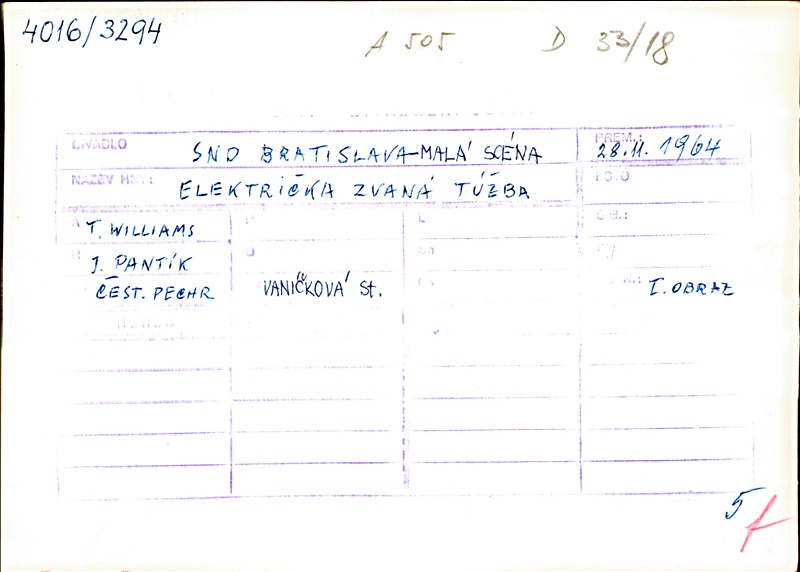 4016/3294 A 505 D 33/18
DIVADLO SND BRATISLAVA-MALÁ SCÉNA PREM.: 28.11.1964
NÁZEV HRY: ELEKTRIČKA ZVANÁ TÚŽBA FOTO
A T. WILLIAMS
R J. PANTÍK
ČEST. PECHR VANIČKOVÁ St. I. OBRAZ
5